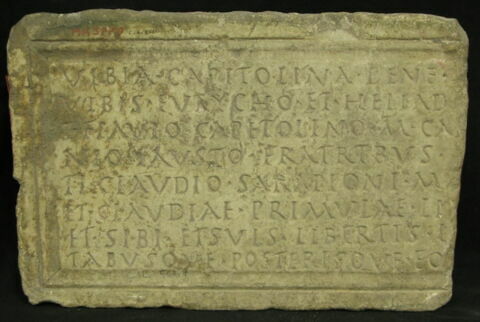 VIBIA · CAPITOLINA · BENE
ET · HELIAD
CAPITOLINO · M · CA
FAVSTO · FRATRIBVS ·
TI · CLAVDIO · SARAPIONI · M
ET · CLAVDIAE · PRIMVLAE · LI
ET · SIBI · ET SVIS · LIBERTIS · L
TABVSQVE · POSTERISQVE · EO